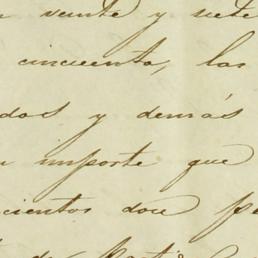 veinte y siete
cincuenta, las
dos y demás
importe que
cientos doce pe